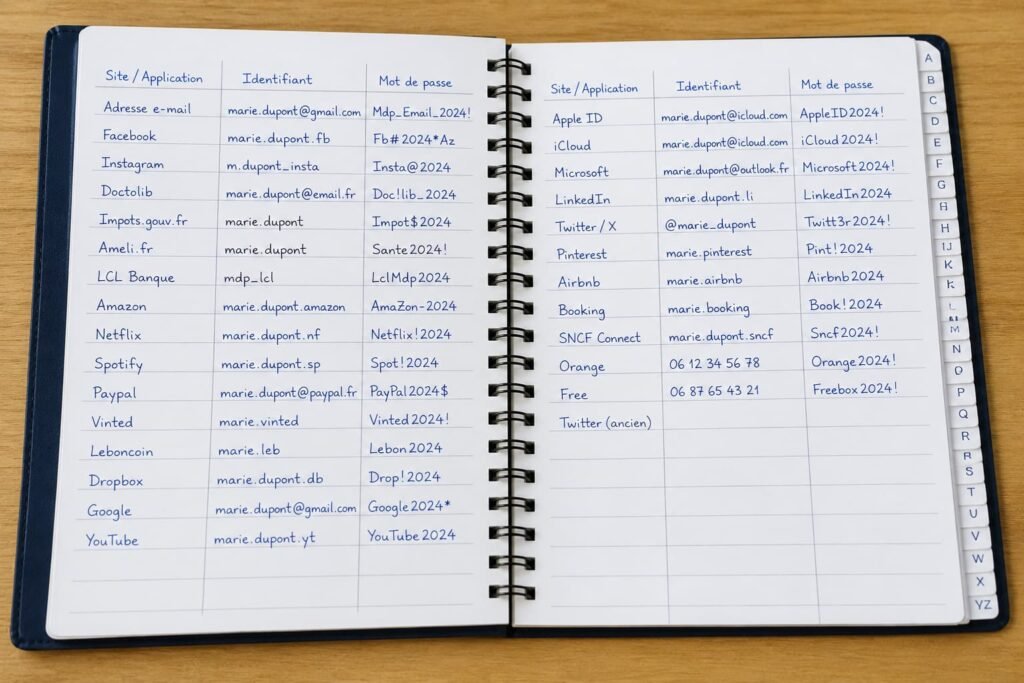 Site / Application Identifiant Mot de passe
Adresse e-mail marie.dupont@gmail.com Mdp_Email_2024!
Facebook marie.dupont.fb Fb#2024*Az
Instagram m.dupont_insta Insta@2024
Doctolib marie.dupont@email.fr Doc!lib_2024
Impots.gouv.fr marie.dupont Impot$2024
Ameli.fr marie.dupont Sante2024!
LCL Banque mdp_lcl LclMdp2024
Amazon marie.dupont.amazon AmaZon-2024
Netflix marie.dupont.nf Netflix!2024
Spotify marie.dupont.sp Spot!2024
Paypal marie.dupont@paypal.fr PayPal2024$
Vinted marie.vinted Vinted2024!
Leboncoin marie.leb Lebon2024
Dropbox marie.dupont.db Drop!2024
Google marie.dupont@gmail.com Google2024*
YouTube marie.dupont.yt YouTube2024
Site / Application Identifiant Mot de passe
Apple ID marie.dupont@icloud.com AppleID2024!
iCloud marie.dupont@icloud.com iCloud2024!
Microsoft marie.dupont@outlook.fr Microsoft2024!
LinkedIn marie.dupont.li LinkedIn2024
Twitter / X @marie_dupont Twitt3r2024!
Pinterest marie.pinterest Pint!2024
Airbnb marie.airbnb Airbnb2024
Booking marie.booking Book!2024
SNCF Connect marie.dupont.sncf Sncf2024!
Orange 06 12 34 56 78 Orange2024!
Free 06 87 65 43 21 Freebox2024!
Twitter (ancien)
A
B
C
D
E
F
G
H
IJ
K
K
L
M
N
O
P
Q
R
R
S
T
U
V
W
X
YZ